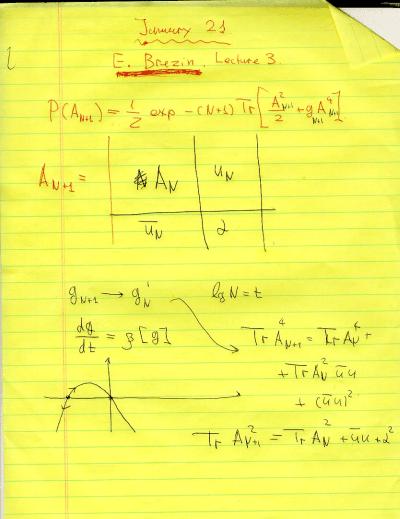 January 21
E. Brezin. Lecture 3.
P(A_{N+1}) = 1/Z exp -(N+1) Tr[A²_{N+1}/2 + gA⁴_{N+1}]
A_{N+1} = | A_N | u_N |
| ū_N | α |
g_{N+1} → g'_N log N = t
dg/dt = β[g]
Tr A⁴_{N+1} = Tr A_N⁴ +
+ Tr A_N² ūu
+ (ūu)²
Tr A²_{N+1} = Tr A_N² + ūu + α²